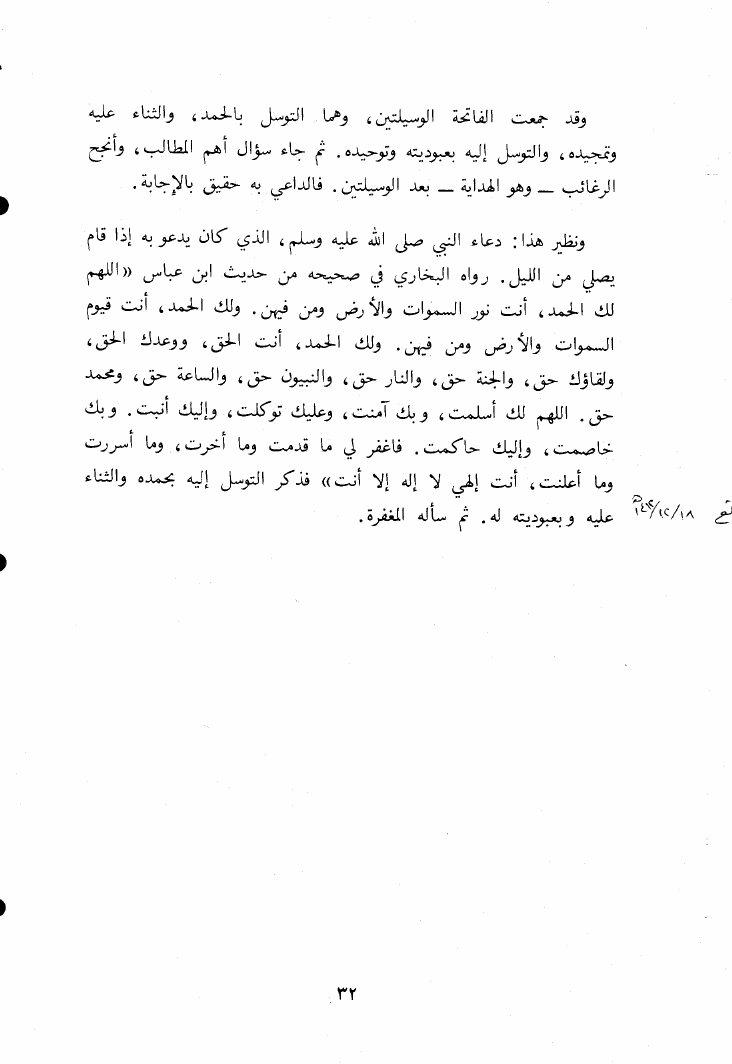 وقد جمعت الفاتحة الوسيلتين، وهما التوسل بالحمد، والثناء عليه
وتمجيده، والتوسل إليه بعبوديته وتوحيده. ثم جاء سؤال أهم المطالب، وأنجح
الرغائب — وهو الهداية — بعد الوسيلتين. فالداعي به حقيق بالإجابة.
ونظير هذا: دعاء النبي صلى الله عليه وسلم، الذي كان يدعو به إذا قام
يصلي من الليل. رواه البخاري في صحيحه من حديث ابن عباس «اللهم
لك الحمد، أنت نور السموات والأرض ومن فيهن. ولك الحمد، أنت قيوم
السموات والأرض ومن فيهن. ولك الحمد، أنت الحق، ووعدك الحق،
ولقاؤك حق، والجنة حق، والنار حق، والنبيون حق، والساعة حق، ومحمد
حق. اللهم لك أسلمت، وبك آمنت، وعليك توكلت، وإليك أنبت. وبك
خاصمت، وإليك حاكمت. فاغفر لي ما قدمت وما أخرت، وما أسررت
وما أعلنت، أنت إلهي لا إله إلا أنت» فذكر التوسل إليه بحمده والثناء
عليه وبعبوديته له. ثم سأله المغفرة.
٣٢